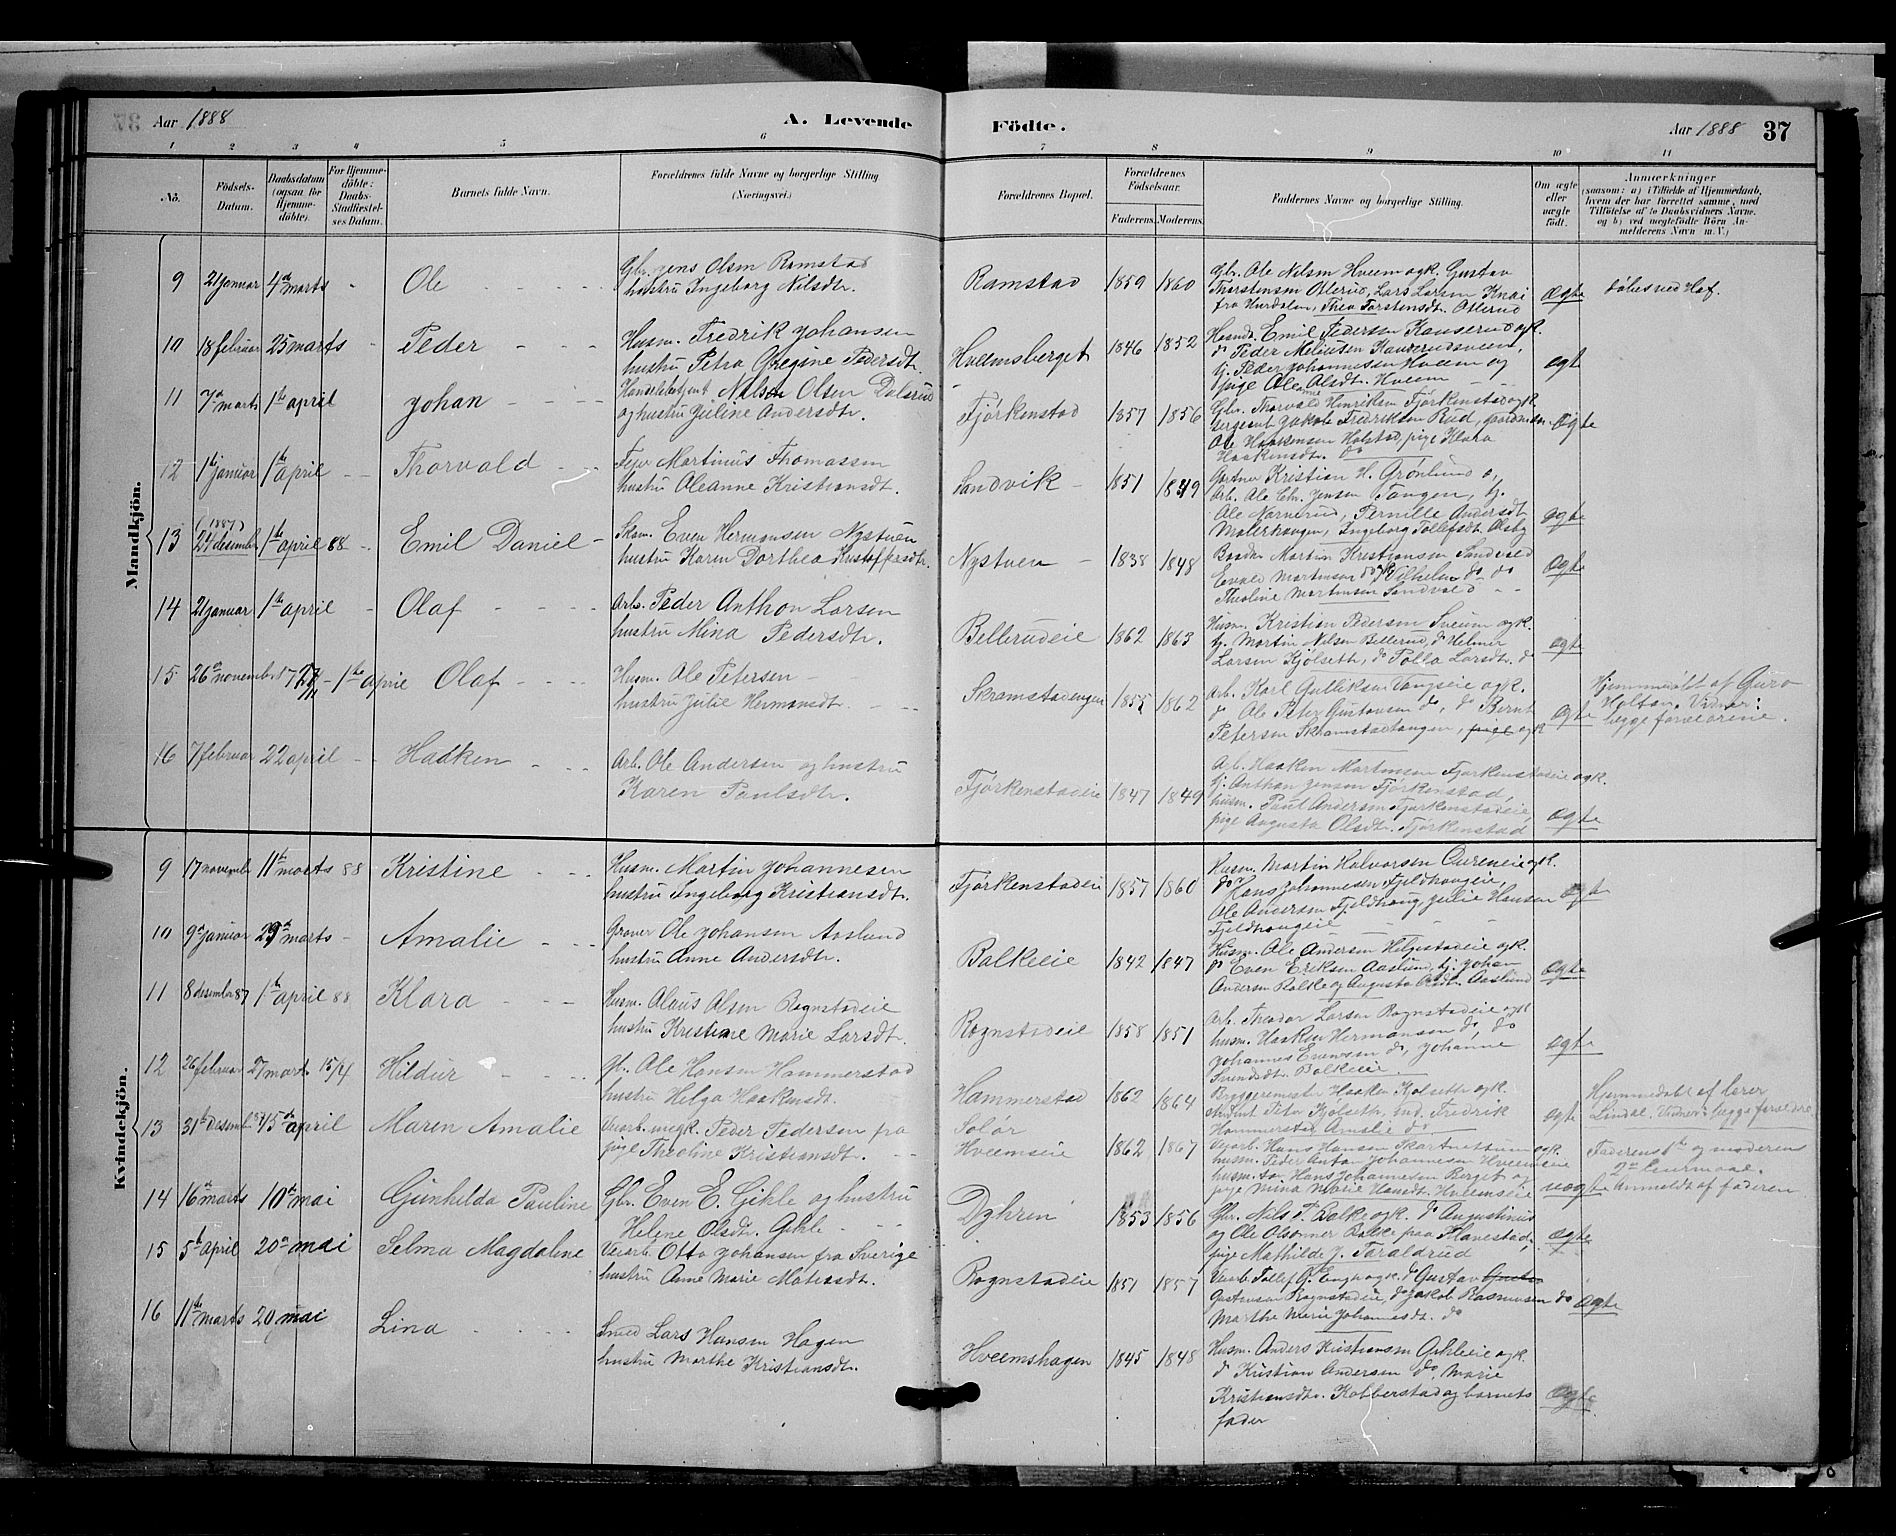 Aar 1888
A. Levende
Födte.
Aar 1888 37
1 2 3 4 5 6 7 8 9 10 11
No.
Födsels-Datum.
Daabsdatum (ogsaa for Hjemme-döbte).
For Hjemme-döbte: Daabs-Stadfæstel-ses Datum.
Barnets fulde Navn.
Forældrenes fulde Navne og borgerlige Stilling
(Næringsvei.)
Forældrenes Bopæl.
Forældrenes Födselsaar.
Faderens. Moderens.
Faddernes Navne og borgerlige Stilling.
Om ægte eller uægte födt.
Anmærkninger
(saasom: a) i Tilfælde af Hjemmedaab,
hvem der har forrettet samme, med
Tilföielse af to Daabsvidners Navne.
og b) ved uegtefödte Börn An-
melderens Navn m. V.)
Mandkjön.
9 21 januar 4d marts - Ole
Gbr. Jens Olsen Ramstad
hustru Ingeborg Nilsdtr.
Ramstad 1859 1860
Gbr. Ole Nilsen Hveem ogk. Gustav
Thorstensen Ollerud, Lars Larsen Knai
fra Hurdalen, Thea Torstensdt. Ollerud
Ægte
döbes ved Hof.
10 18 februar 25 marts - Peder
Husm. Fredrik Johansen
hustru Petra Oregine Pedersdt.
Hveemsberget 1846 1852
Husmd. Emil Pedersen Kanserud ogk.
do Peder Meliusen Kanderudsveen,
tj. Peder Johannessen Hveem og
pige Oleanne Olsdt. Hveem
ægte
11 7d marts 1ste april Johan
Handelsbetjent Nilsen Olsen Dalsrud
og hustru Juline Andersdtr.
Fjörkenstad 1857 1856
Gbr. Thorvald Henriksen Fjörkenstad ogk.
sergeant Jakob Fredriksen Rud, gaardman
Ole Haakensen Holstad, pige Klara
Haakensdt. do
Ægte
12 1ste januar 1ste april - Thorvald
Feier Martinus Thomassen
hustru Oleanne Kristiansdt.
Sandvik - 1851 1849
Gartner Kristian H. Grönlund o,
Arb. Ole Chr. Jensen Tangen, tj.
Ole Nærnerud, Pernille Andersdt
Malerhaugen, Ingeborg Tollefsdt. Olsby
ægte
13 (1887) 24 desember 1ste april 88 - Emil Daniel -
Skom. Even Hermansen Nystuen
hustru Karen Dorthea Kristoffersdtr.
Nystuen - 1838 1848
Martin Kristiansen Sandvold
Evald Martinsen do ogk Vilhelm do do
Theoline Martinsen Sandvold
Ægte
14 21 januar 1ste april - Olaf
Arb. Peder Anthon Larsen
hustru Mina Pedersdtr.
Bellerudeie 1862 1863
Husm. Kristian Pedersen Sveum ogk.
tj. Martin Nilsen Bellerud, do Helmer
Larsen Kjölseth, do Polla Larsdt. do
ægte
15 26de novemb. 87 27/11 - 1ste april Olaf
Husm. Ole Petersen -
hustru Julie Hermansdt.
Skramstadengen 1855 1862
Arb. Karl Gulliksen Vangseie ogk.
do Ole Peter Gustavsen do, do Bernt
Petersen Skramstadtangen, pige ogk
ægte
Hjemmedöbt af Guro
Holton. Vidner:
begge forældrene.
16 7 februar 22 april - Haaken
Arb. Ole Andersen og hustru
Karen Paulsdtr.
Fjörkenstadeie 1847 1849
Arb. Haaken Martinsen Fjörkenstadeie ogk.
tj. Anthon Jensen Fjörkenstad,
husm. Paul Andersen Fjörkenstadeie
pige Augusta Olsdt. Fjörkenstad
ægte
Kvindekjön.
9 17 november 11te marts 88 Kristine
Husm. Martin Johannesen
hustru Ingeborg Kristiansdt.
Fjörkenstadeie 1857 1860
Husm. Martin Halvorsen Oureneie ogk.
do Hans Johannesen Fjeldhaugeie,
Ole Andersen Fjeldhaug, Julie Hansen
Fjeldhaugeie
ægte
10 9de januar 29de marts - Amalie
Graver Ole Johansen Aaslund
hustru Anne Andersdtr.
Balkeeie 1842 1847
Husm. Ole Andersen Helgestadeie ogk.
do Even Eriksen Aaslund, tj. Johan
Andersen Balke og Augusta Olsdt. Aaslund
Ægte
11 8 desember 87 1ste april 88 Klara
Husm. Olaus Olsen Rognstadeie
hustru Kristine Marie Larsdt.
Rognstadeie 1858 1851
Arb. Theodor Larsen Rognstadeie ogk
husm. Haaken Hermansen do, do
Johannes Evensen do, Johanne
Svendsdt. Balkeeie.
ægte
12 26 februar 27 mart. 15/4 Hildur
gl. Ole Hansen Hammerstad
hustru Helga Haakensdt.
Hammerstad 1862 1864
Bryggeremester Haaken Kolseth ogk.
student Peter Kolseth, ung. Fredrik
Hammerstad Amalie do
ægte
Hjemmedöbt af lærer
Lindal. Vidner: begge forældre
13 31te desemb. 87 15de april Maren Amalie
Veiarb. ungk. Peder Pedersen fra
pige Theoline Kristiansdt.
Solör
Hveemseie 1862 1867
Veiarb. Hans Hansen Skartuttum ogk
husm. Peder Anton Johannesen Hveemseie
husm.sön Hans Johannesen Berget og
pige Mina Marie Hansdt. Hveemseie
uægte
Faderens 1ste og moderens
2det Leiermaal.
Anmeldt af faderen
14 16de marts 10de mai Gunhilda Pauline
Gbr. Even E. Gihle og hustru
Helene Olsdt. Gihle
Dyhren 1853 1856
Gbr. Nils P. Balke ogk. do Augustinus
og Ole Olsönner Balke paa Flanestad,
pige Mathilde J. Taraldrud
ægte
15 5te april 20de mai Selma Magdaline
Veiarb. Otto Johansen fra Sverige
hustru Anne Marie Matiasdt.
Rognstadeie 1851 1857
Veiarb. Tollef G. Engh ogk. do Gustav
Gustavsen Rognstadeie, do Jakob Rasmusen do
Marthe Marie Johannesdt. do
Ægte
16 11te marts 20 mai Lina
Smed Lars Hansen Hagen
hustru Marthe Kristiansdt.
Hveemshagen 1845 1848
Husm. Anders Kristiansen Gihleeie ogk.
do Kristian Andersen do, Marie
Kristiansdtr. Kobberstad og barnets
fader
Ægte